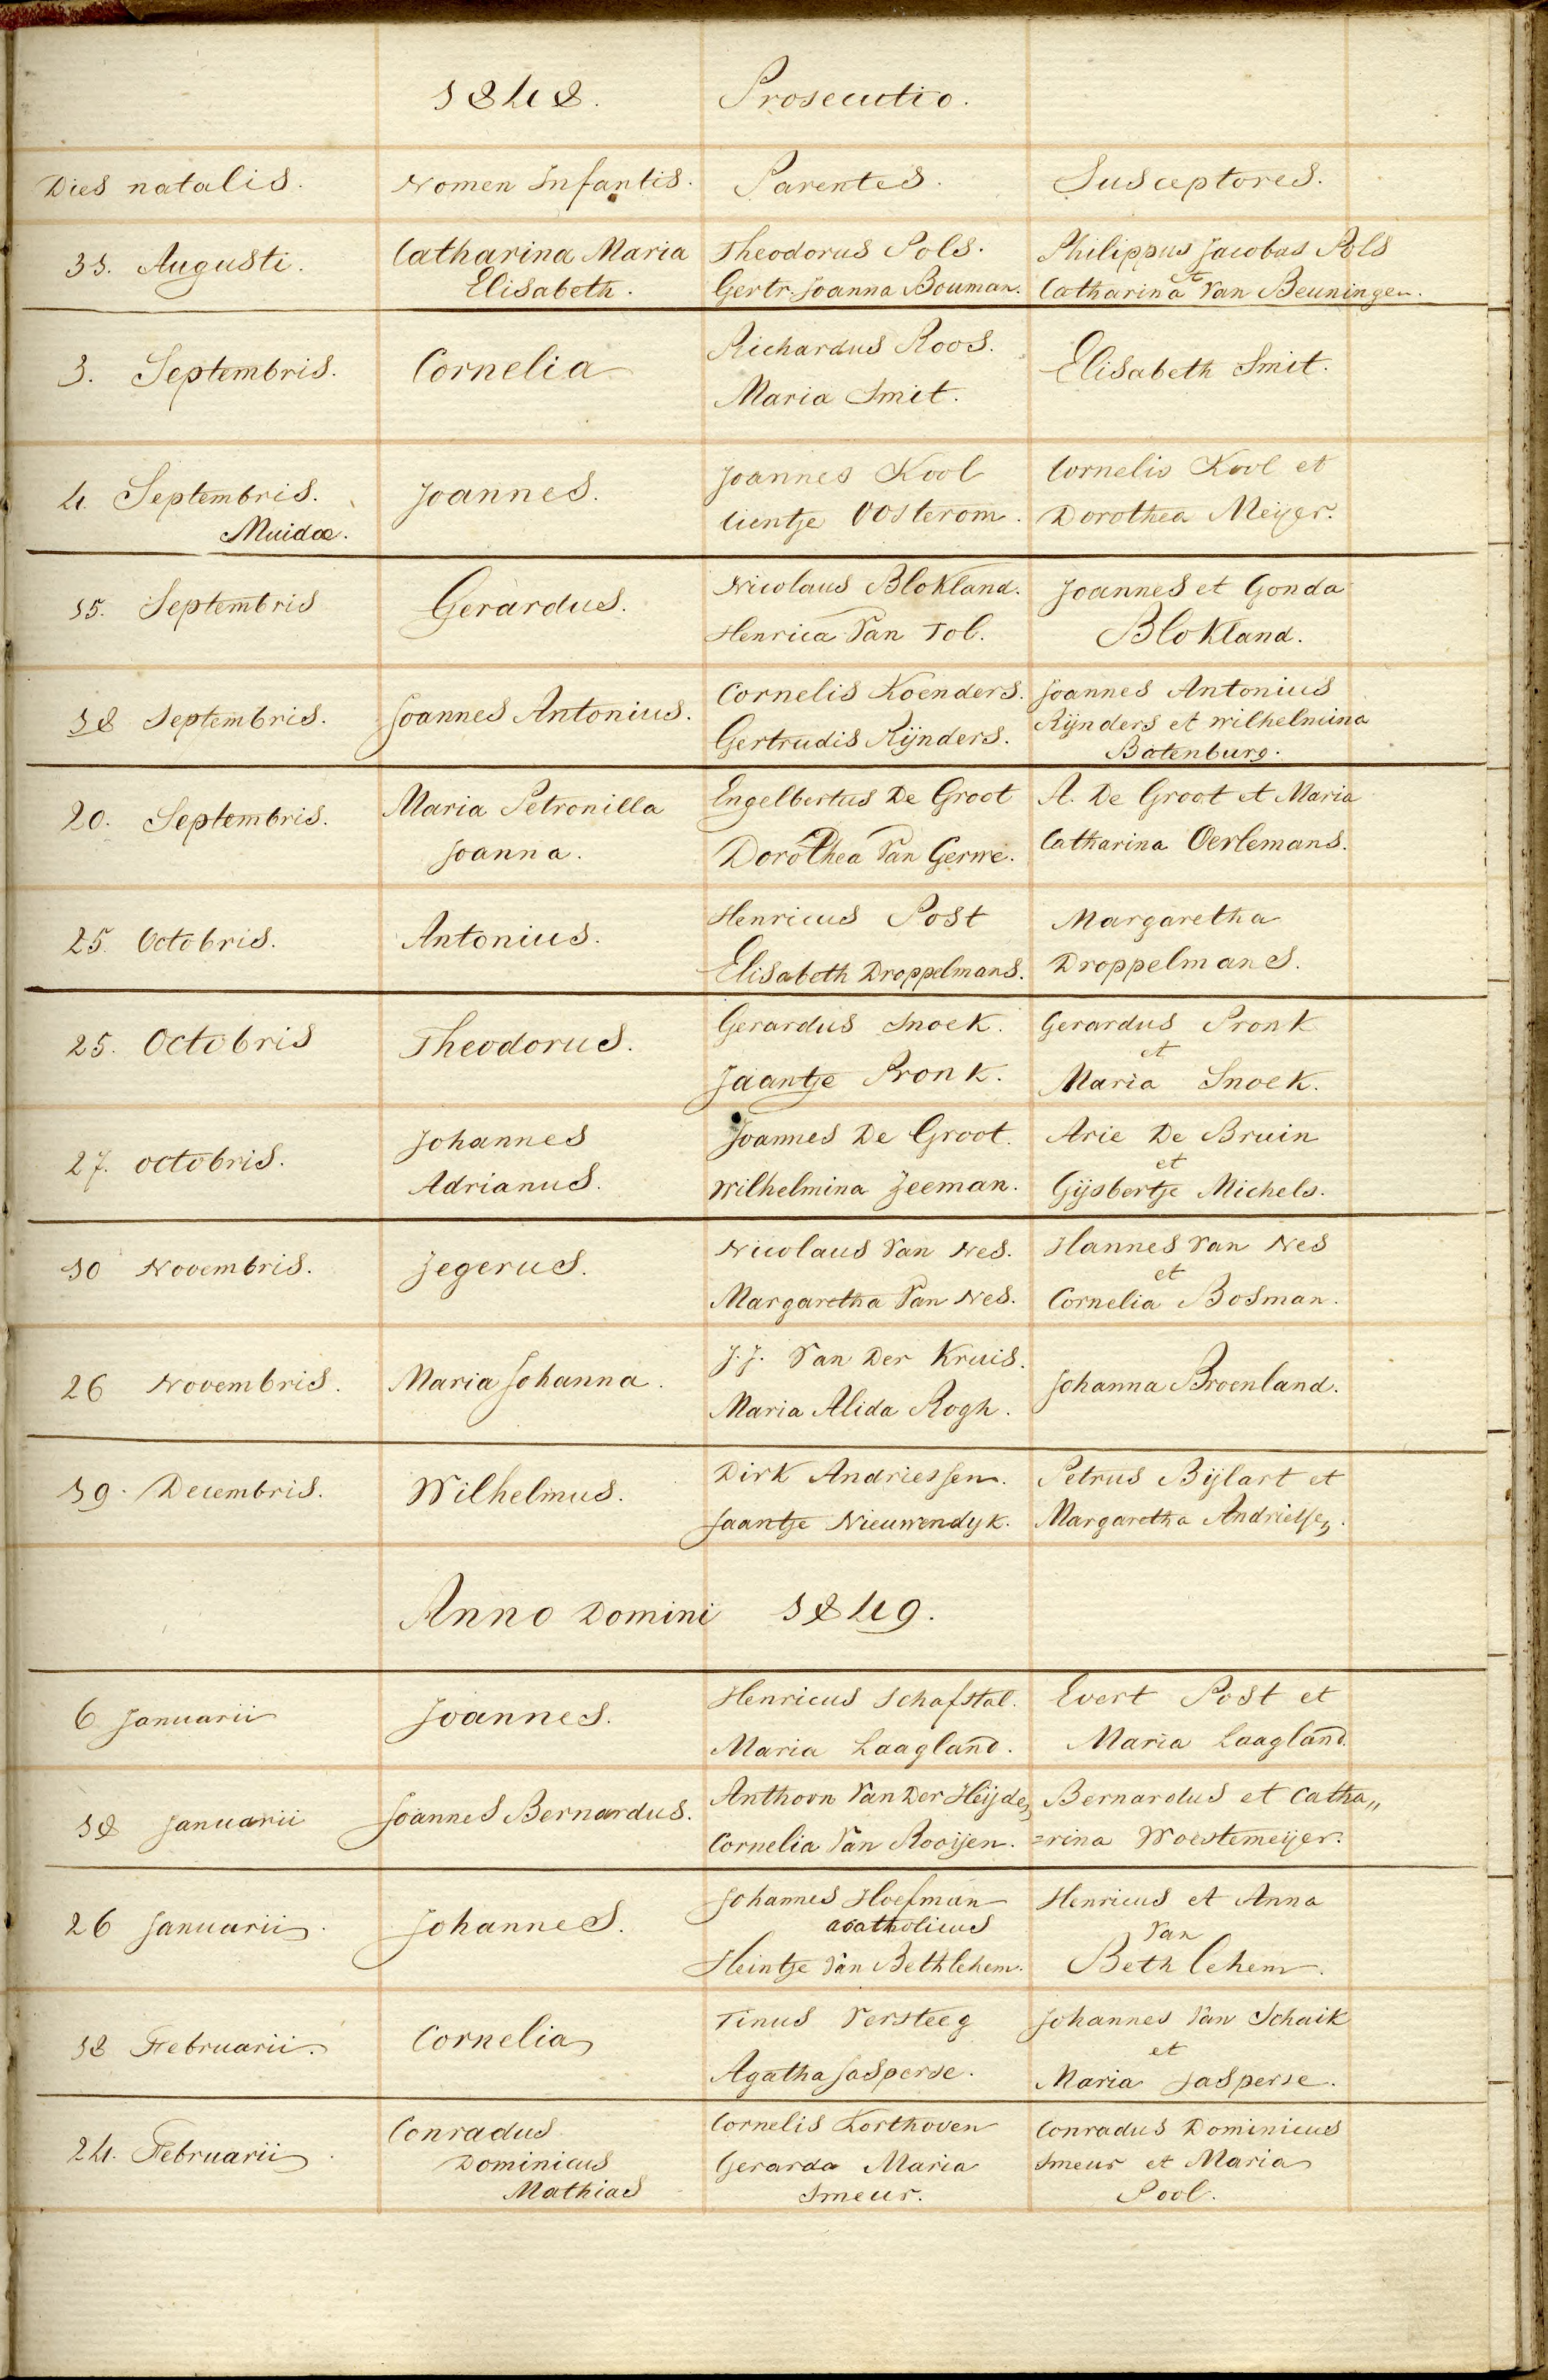 1848. Prosecutio.
Dies natalis. Nomen Infantis. Parentes. Susceptores.
31. Augusti. Catharina Maria Theodorus Pols. Philippus Jacobus Pols
et
Elisabeth. Gertr. Joanna Bouman. Catharina Van Beuningen.
3. Septembris. Cornelia Richardus Roos. Elisabeth Smit.
Maria Smit.
4. Septembris. Joannes. Joannes Kool Cornelis Kool et
Muidae. Cientje Oosterom. Dorothea Meijer.
15. Septembris Gerardus. Nicolaus Blokland. Joannes et Gonda
Henrica Van Tol. Blokland.
18 Septembris. Joannes Antonius. Cornelis Koenders. Joannes Antonius
Gertrudis Rijnders. Rijnders et Wilhelmina
Batenburg.
20. Septembris. Maria Petronilla Engelbertus De Groot A. De Groot et Maria
Joanna. Dorothea Van Gerwe. Catharina Oerlemans.
25. Octobris. Antonius. Henricus Post Margaretha
Elisabeth Droppelmans. Droppelmans.
25. Octobris Theodorus. Gerardus Snoek. Gerardus Pronk
et
Jaantje Pronk. Maria Snoek.
27. Octobris. Johannes Joannes De Groot. Arie De Bruin
et
Adrianus. Wilhelmina Zeeman. Gijsbertje Michels.
10 Novembris. Jegerus. Nicolaus Van Nes. Hannes Van Nes
et
Margaretha Van Nes. Cornelia Bosman.
26 Novembris. Maria Johanna. J. J. Van Der Kruis. Johanna Broenland.
Maria Alida Rogh.
19. Decembris. Wilhelmus. Dirk Andriessen. Petrus Bijlart et
Jaantje Nieuwendyk. Margaretha Andriessen.
Anno Domini 1849.
6 Januarii Joannes. Henricus Schafstal. Evert Post et
Maria Laagland. Maria Laagland.
18 Januarii Joannes Bernardus. Anthoon Van Der Heijden Bernardus et Catha„
Cornelia Van Rooijen. =rina Woestemeijer.
26 Januarii. Johannes. Johannes Hoefman Henricus et Anna
acatholicus Van
Heintje Van Bethlehem. Bethlehem.
18 Februarii. Cornelia Tinus Versteeg Johannes Van Schaik
et
Agatha Jasperse. Maria Jasperse.
24. Februarii. Conradus Cornelis Korthoven Conradus Dominicus
Dominicus Gerarda Maria Smeur et Maria
Mathias Smeur. Pool.